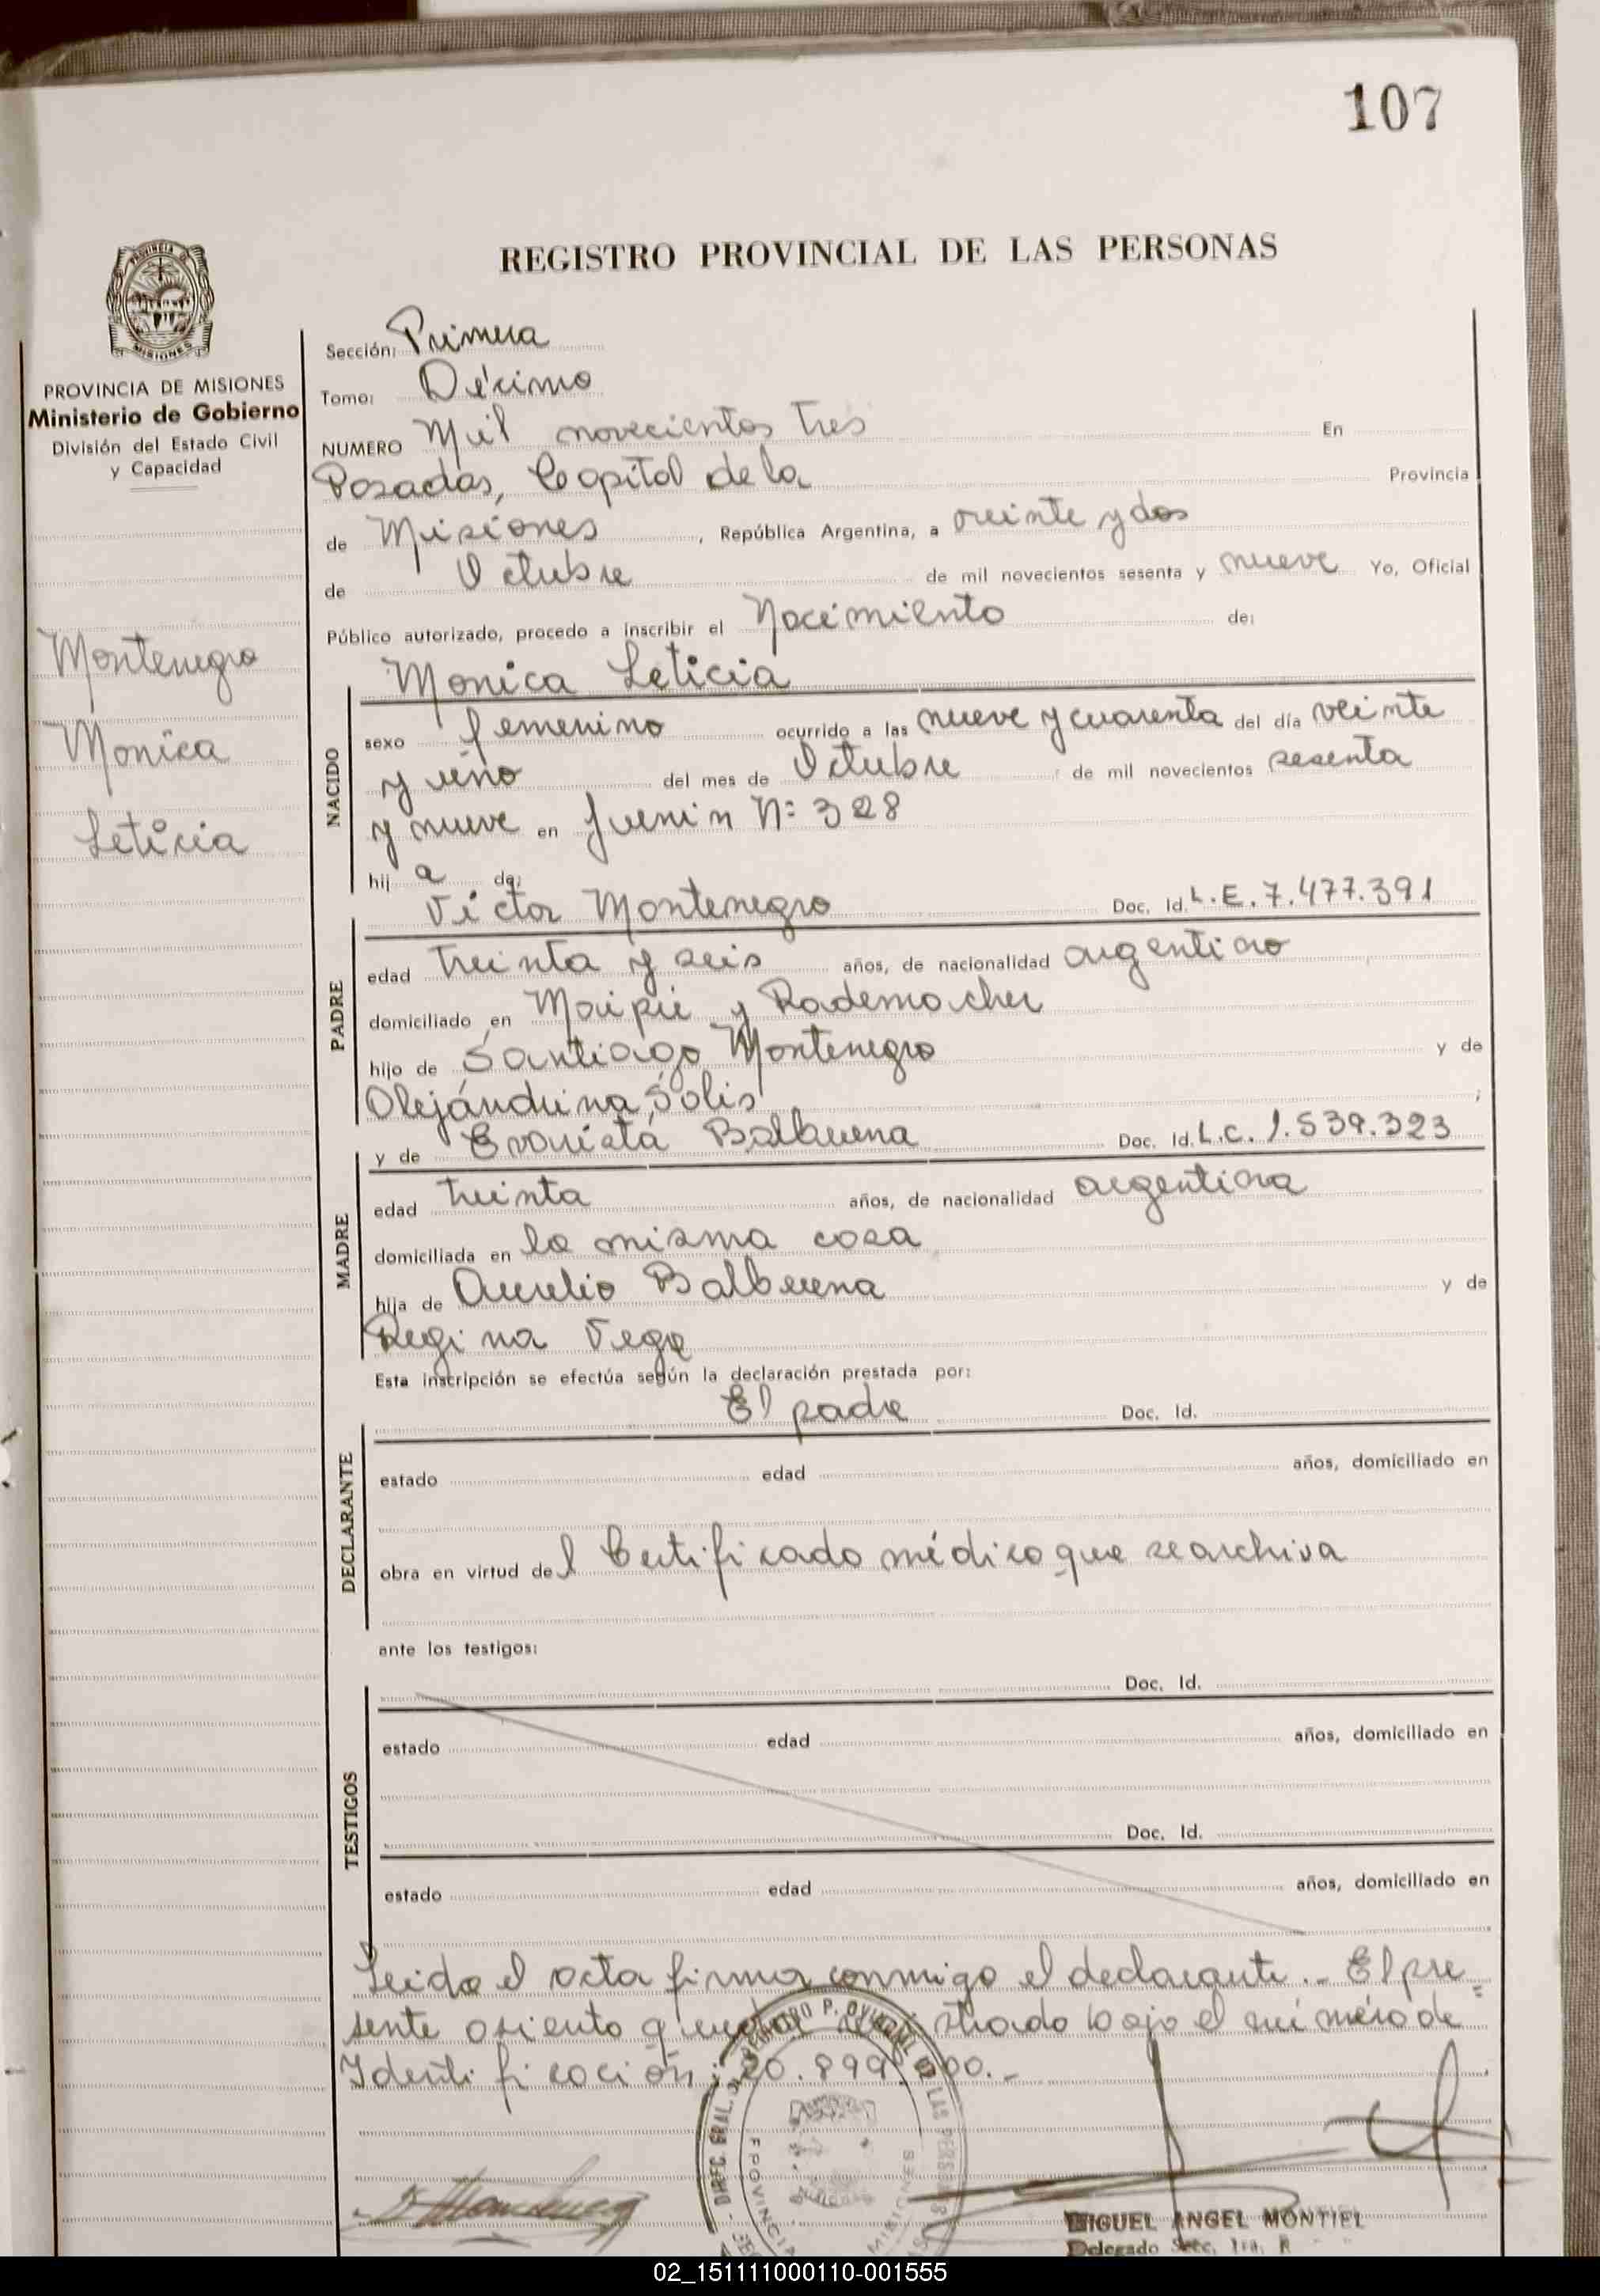 107
REGISTRO PROVINCIAL DE LAS PERSONAS
PROVINCIA DE MISIONES
Ministerio de Gobierno
División del Estado Civil
y Capacidad
Montenegro
Monica
Leticia
Sección: Primera
Tomo: Décimo
NUMERO Mil novecientos tres En
Posadas, Capital de la Provincia
de Misiones, República Argentina, a veinte y dos
de Octubre de mil novecientos sesenta y nueve Yo, Oficial
Público autorizado, procedo a inscribir el Nacimiento de:
Monica Leticia
NACIDO
sexo femenino ocurrido a las nueve y cuarenta del día veinte
y uno del mes de Octubre de mil novecientos sesenta
y nueve en Junin Nº 328
hij a de:
Victor Montenegro Doc. Id. L.E. 7.477.391
PADRE
edad treinta y seis años, de nacionalidad argentino
domiciliado en Maipú y Rademacher
hijo de Santiago Montenegro y de
Alejandrina Solis;
y de Evarista Balbuena Doc. Id. L.C. 1.539.323
MADRE
edad treinta años, de nacionalidad argentina
domiciliada en la misma casa
hija de Aurelio Balbuena y de
Regina Vega
Esta inscripción se efectúa según la declaración prestada por:
El padre Doc. Id.
DECLARANTE
estado edad años, domiciliado en
obra en virtud del Certificado médico que se archiva
ante los testigos:
Doc. Id.
TESTIGOS
estado edad años, domiciliado en
Doc. Id.
estado edad años, domiciliado en
Leida el acta firma conmigo el declarante.- El pre=
sente asiento queda bajo el número de
Identificación: 20.899.
MIGUEL ANGEL MONTIEL
Delegado Secc. 1ra.
02_151111000110-001555